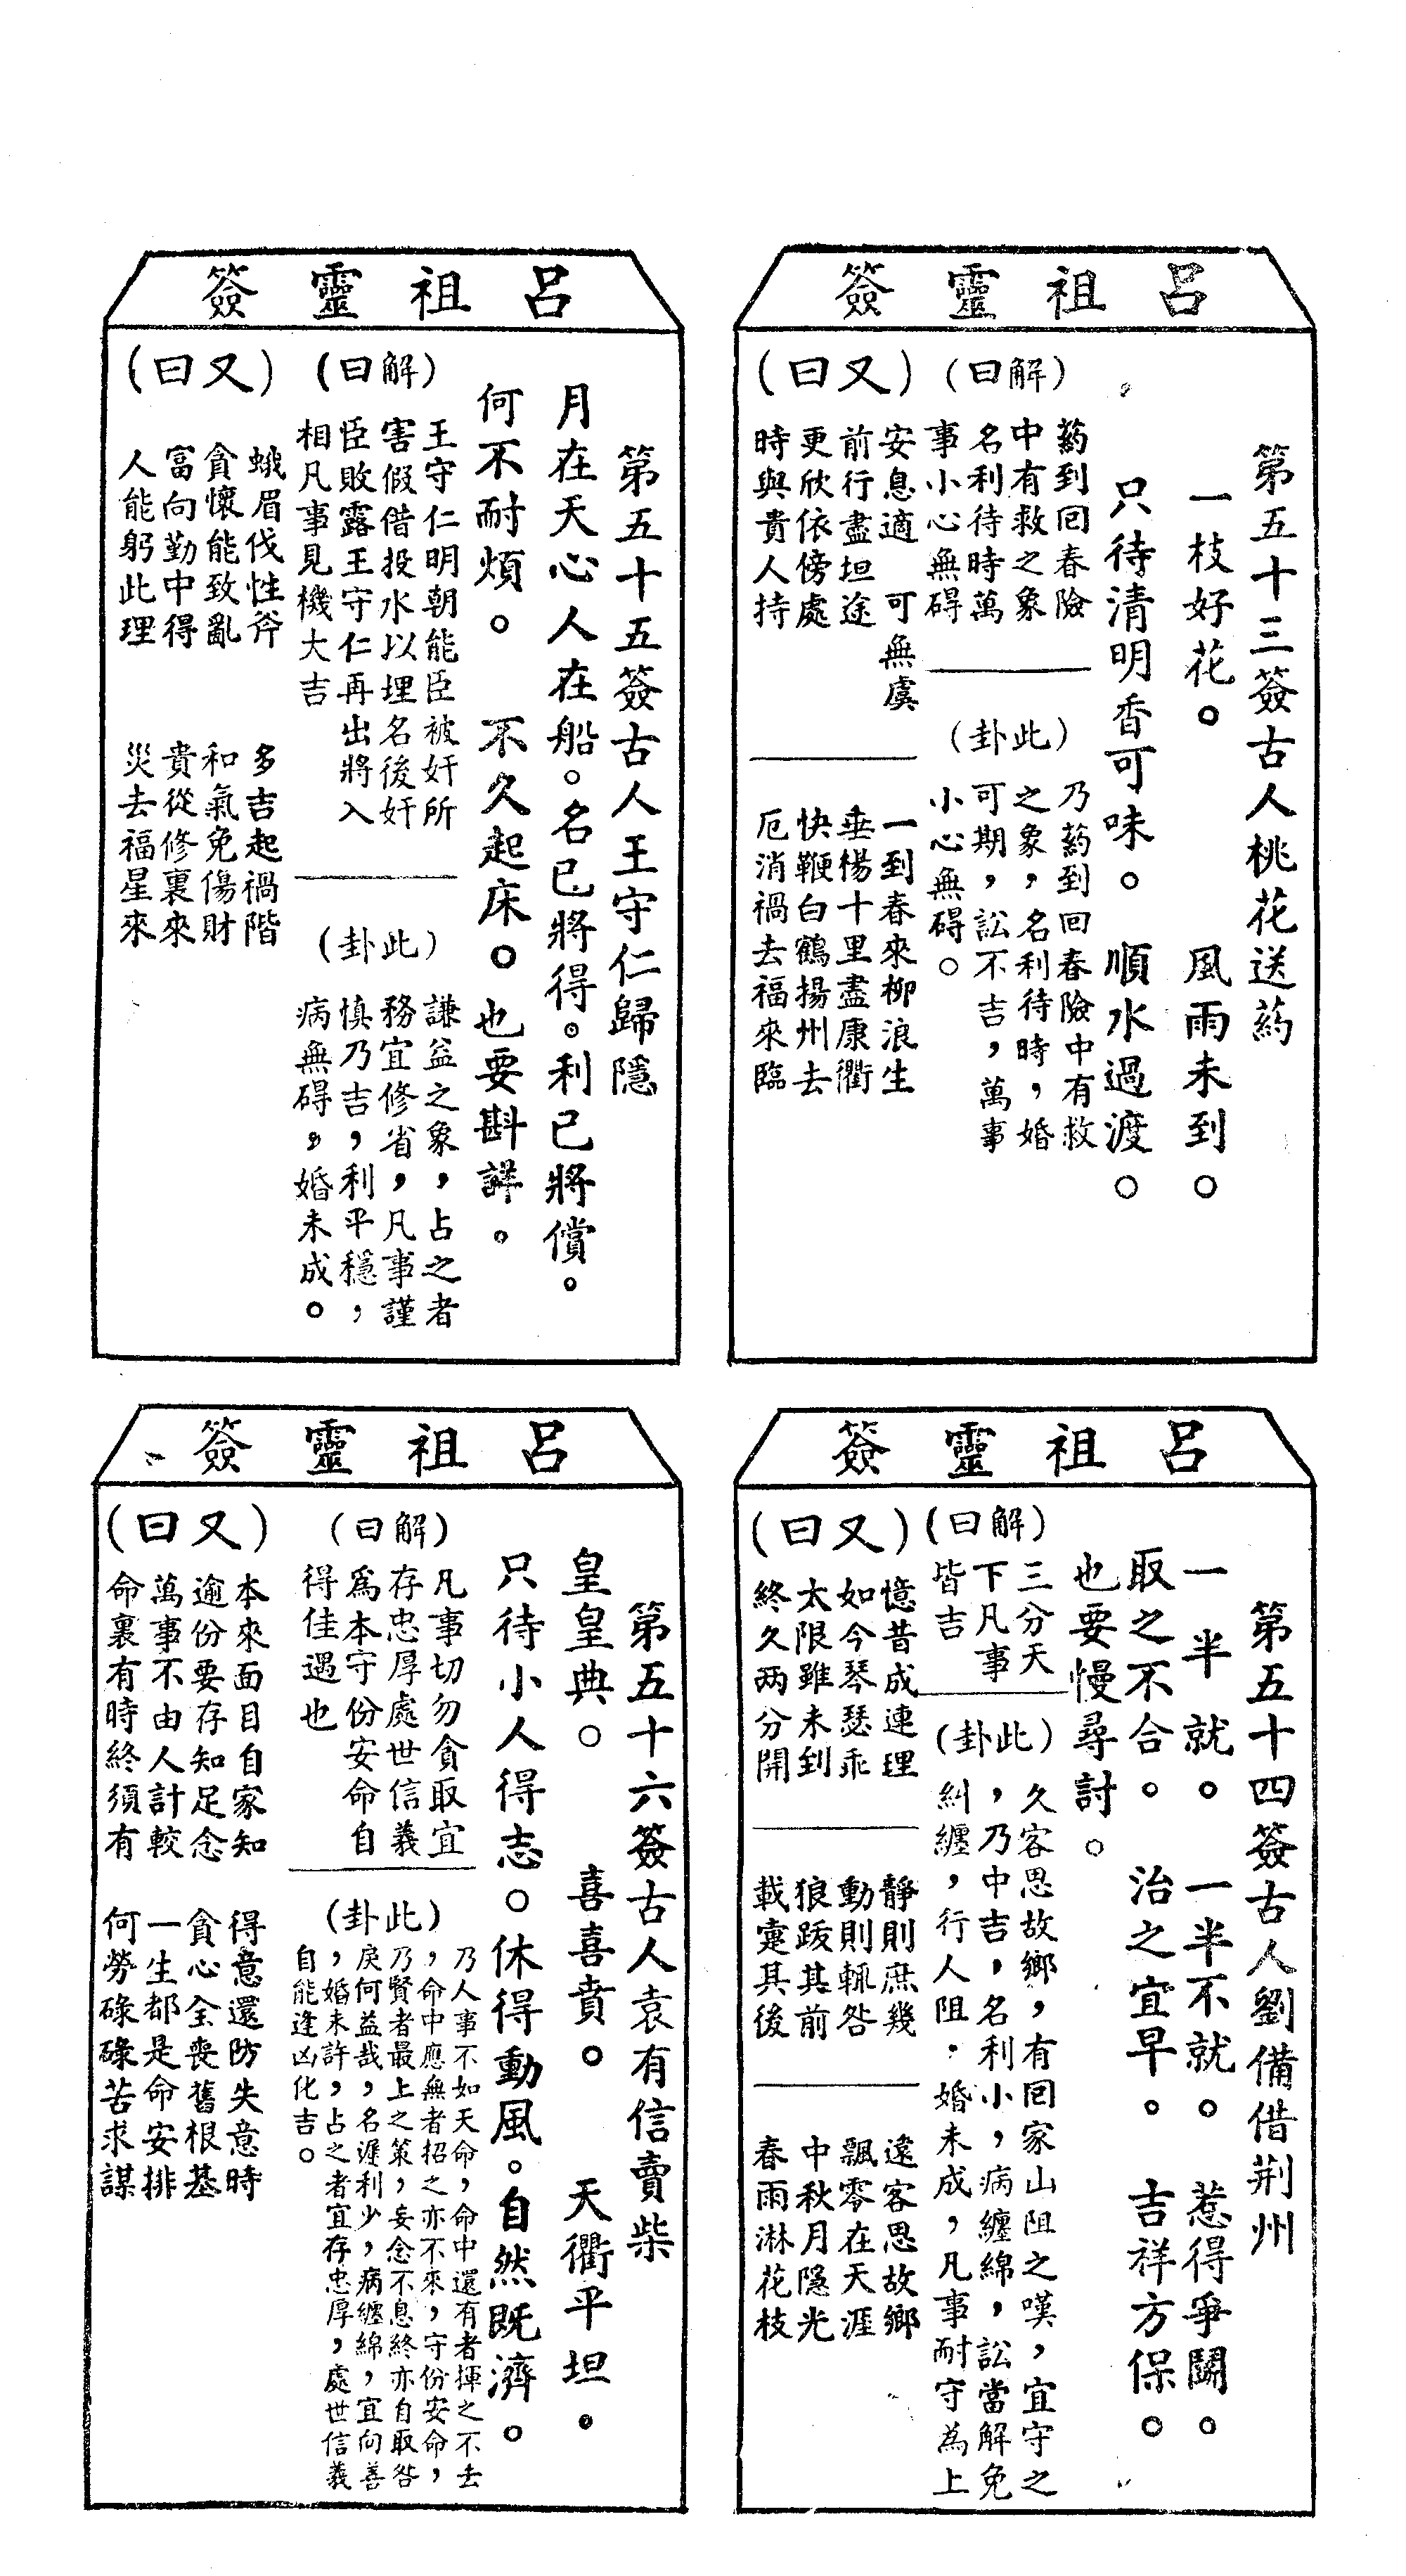 呂祖靈簽
第五十三簽古人桃花送葯
一枝好花。　風雨未到。
只待清明香可味。順水過渡。
（解曰）
葯到回春險
中有救之象
名利待時萬
事小心無碍
（此卦）
乃葯到回春險中有救
之象，名利待時，婚
可期，訟不吉，萬事
小心無碍。
（又曰）
安息適可無虞
前行盡坦途
更欣依傍處
時與貴人持
一到春來柳浪生
垂楊十里盡康衢
快鞭白鶴揚州去
厄消禍去福來臨
呂祖靈簽
第五十四簽古人劉備借荆州
一半就。一半不就。惹得爭鬭。
取之不合。治之宜早。吉祥方保。
也要慢尋討。
（解曰）
三分天
下凡事
皆吉
（此卦）
久客思故鄉，有回家山阻之嘆，宜守之
，乃中吉，名利小，病纏綿，訟當解免
糾纏，行人阻．婚未成，凡事耐守為上
（又曰）
憶昔成連理
如今琴瑟乖
太限雖未到
終久两分開
靜則庶幾
動則輒咎
狼跋其前
載疐其後
遠客思故鄉
飄零在天涯
中秋月隐光
春雨淋花枝
呂祖靈簽
第五十五簽古人王守仁歸隱
月在天心人在船。名已將得。利已將償。
何不耐煩。不久起床。也要斟詳。
（解曰）
王守仁明朝能臣被奸所
害假借投水以埋名後奸
臣敗露王守仁再出將入
相凡事見機大吉
（此卦）
謙益之象，占之者
務宜修省，凡事謹
慎乃吉，利平穩，
病無碍，婚未成。
（又曰）
蛾眉伐性斧
貪懷能致亂
富向勤中得
人能躬此理
多吉起禍階
和氣免傷財
貴從修裏來
災去福星來
呂祖靈簽
第五十六簽古人袁有信賣柴
皇皇典。喜喜賁。天衢平坦．
只待小人得志。休得動風。自然既濟。
（解曰）
凡事切勿貪取宜
存忠厚處世信義
爲本守份安命自
得佳遇也
（此卦）
乃人事不如天命，命中還有者揮之不去
，命中應無者招之亦不來，守份安命，
乃賢者最上之策，妄念不息終亦自取咎
戾何益哉，名遲利少，病纏綿，宜向善
，婚未許，占之者宜存忠厚，處世信義
自能逢凶化吉。
（又曰）
本來面目自家知
逾份要存知足念
萬事不由人計較
命裏有時終須有
得意還防失意時
貪心全喪舊根基
一生都是命安排
何勞碌碌苦求謀